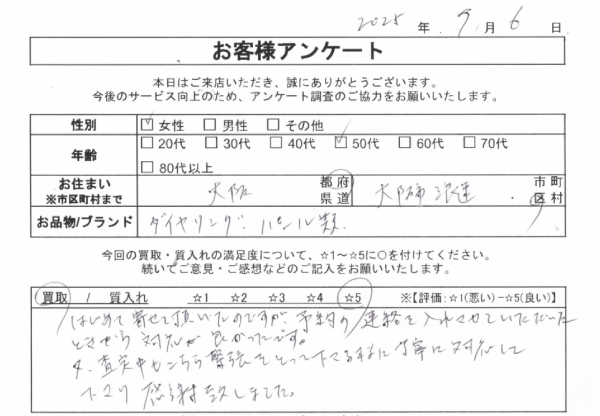 2025 年 9 月 6 日
お客様アンケート
本日はご来店いただき、誠にありがとうございます。
今後のサービス向上のため、アンケート調査のご協力をお願いいたします。
性別 ☑ 女性 □ 男性 □ その他
年齢 □ 20代 □ 30代 □ 40代 ☑ 50代 □ 60代 □ 70代
□ 80代以上
お住まい
※市区町村まで
大阪 都 府 県 道 大阪市浪速 ・ 市 町 区 村
お品物/ブランド ダイヤリング、パール類
今回の買取・質入れの満足度について、☆1～☆5に○を付けてください。
続いてご意見・ご感想などのご記入をお願いいたします。
買取 / 質入れ ☆1 ☆2 ☆3 ☆4 ☆5 ※【評価:☆1(悪い)−☆5(良い)】
はじめて寄せて頂いたのですが、予約の連絡を入れさせていただいた
ときから対応が良かったです。
又、査定中もこちら緊張をとって下さる様に丁寧に対応して
下さり感謝致しました。